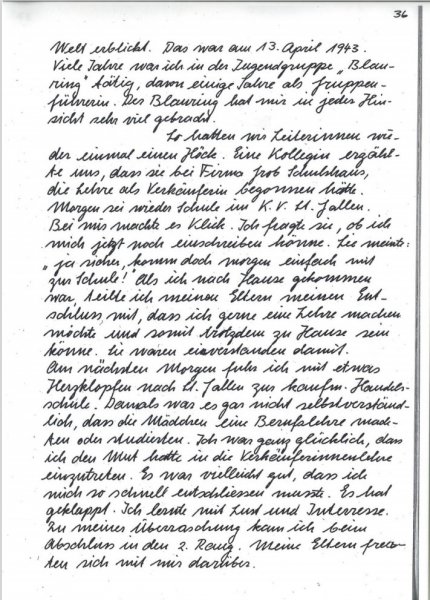 36
Welt erblickt. Das war am 13. April 1943.
Viele Jahre war ich in der Jugendgruppe „Blau-
ring" tätig, davon einige Jahre als Gruppen-
führerin. Der Blauring hat mir in jeder Hin-
sicht sehr viel gebracht.
So hatten wir Leiterinnen wie-
der einmal einen Höck. Eine Kollegin erzähl-
te uns, dass sie bei Firma Grob Schuhhaus,
die Lehre als Verkäuferin begonnen hätte.
Morgen sei wieder Schule im K.V. St. Gallen.
Bei mir machte es Klick. Ich fragte sie, ob ich
mich jetzt noch einschreiben könne. Sie meinte:
„ja sicher, komm doch morgen einfach mit
zur Schule!" Als ich nach Hause gekommen
war, teilte ich meinen Eltern meinen Ent-
schluss mit, dass ich gerne eine Lehre machen
möchte und somit trotzdem zu Hause sein
könne. Sie waren einverstanden damit.
Am nächsten Morgen fuhr ich mit etwas
Herzklopfen nach St. Gallen zur kaufm. Handels-
schule. Damals war es gar nicht selbstverständ-
lich, dass die Mädchen eine Berufslehre mach-
ten oder studierten. Ich war ganz glücklich, dass
ich den Mut hatte in die Verkäuferinnenlehre
einzutreten. Es war vielleicht gut, dass ich
mich so schnell entschliessen musste. Es hat
geklappt. Ich lernte mit Lust und Interresse.
Zu meiner Überraschung kam ich beim
Abschluss in den 2. Rang. Meine Eltern freu-
ten sich mit mir darüber.